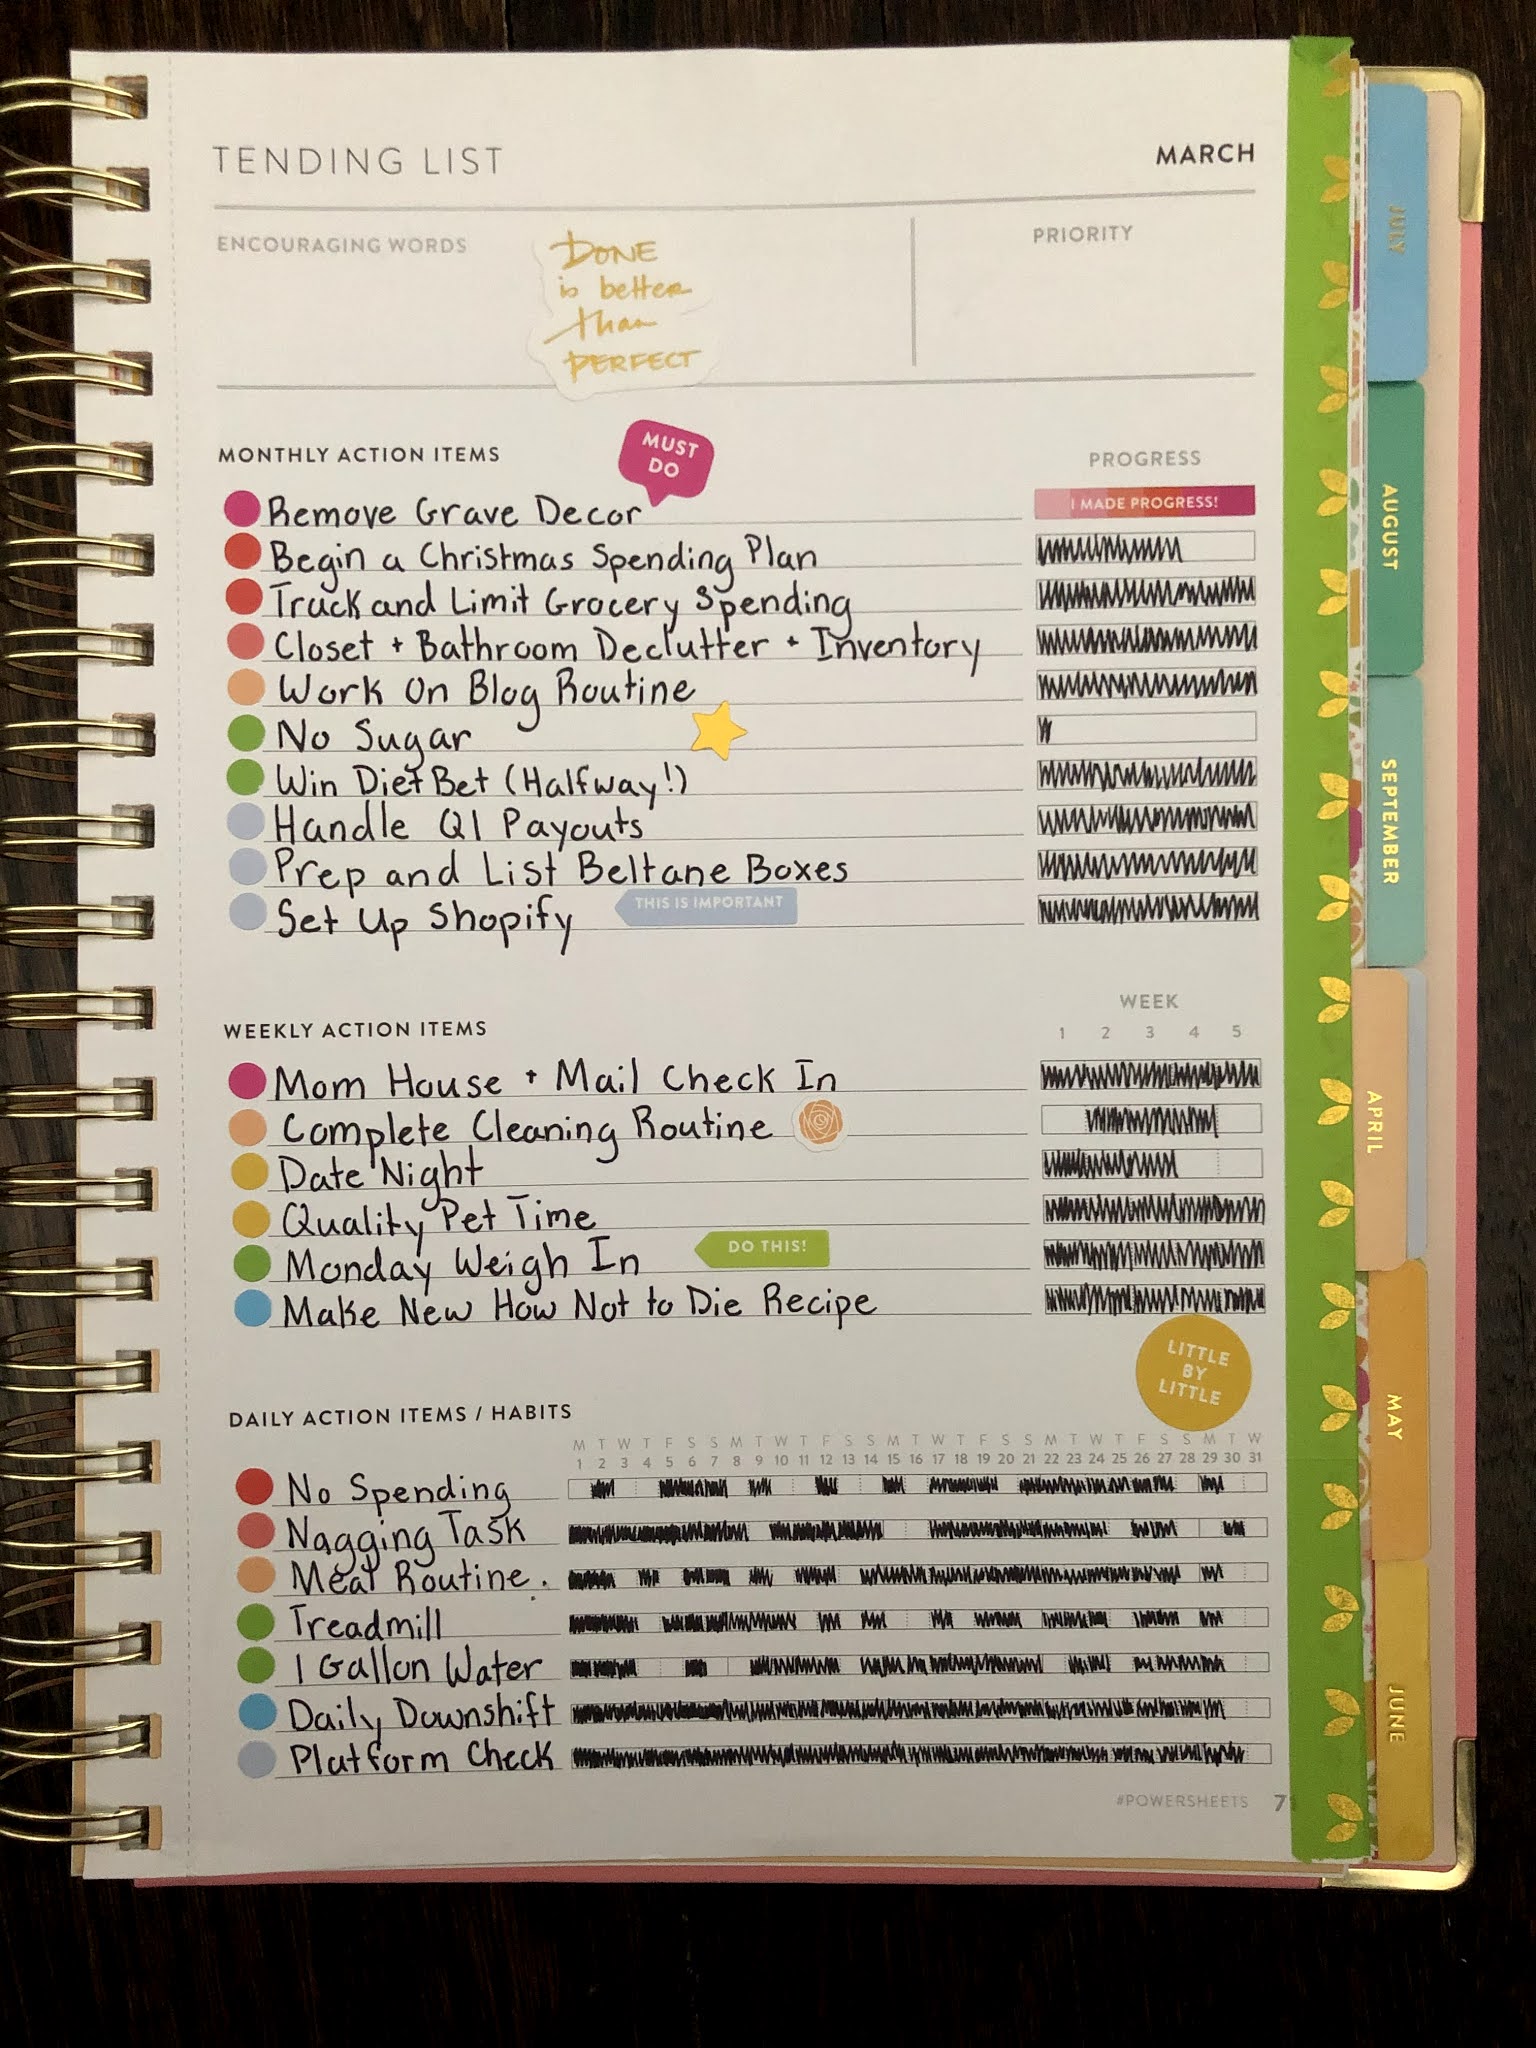 TENDING LIST MARCH
ENCOURAGING WORDS
DONE
is better
than
PERFECT
PRIORITY
MONTHLY ACTION ITEMS
MUST
DO
PROGRESS
Remove Grave Decor
I MADE PROGRESS!
Begin a Christmas Spending Plan
Track and Limit Grocery Spending
Closet + Bathroom Declutter + Inventory
Work On Blog Routine
No Sugar
Win DietBet (Halfway!)
Handle Q1 Payouts
Prep and List Beltane Boxes
Set Up Shopify
THIS IS IMPORTANT
WEEKLY ACTION ITEMS
WEEK
1 2 3 4 5
Mom House + Mail Check In
Complete Cleaning Routine
Date Night
Quality Pet Time
Monday Weigh In
DO THIS!
Make New How Not to Die Recipe
LITTLE
BY
LITTLE
DAILY ACTION ITEMS / HABITS
M T W T F S S M T W T F S S M T W T F S S M T W T F S S M T W
1 2 3 4 5 6 7 8 9 10 11 12 13 14 15 16 17 18 19 20 21 22 23 24 25 26 27 28 29 30 31
No Spending
Nagging Task
Meal Routine.
Treadmill
1 Gallon Water
Daily Downshift
Platform Check
#POWERSHEETS
JULY
AUGUST
SEPTEMBER
APRIL
MAY
JUNE